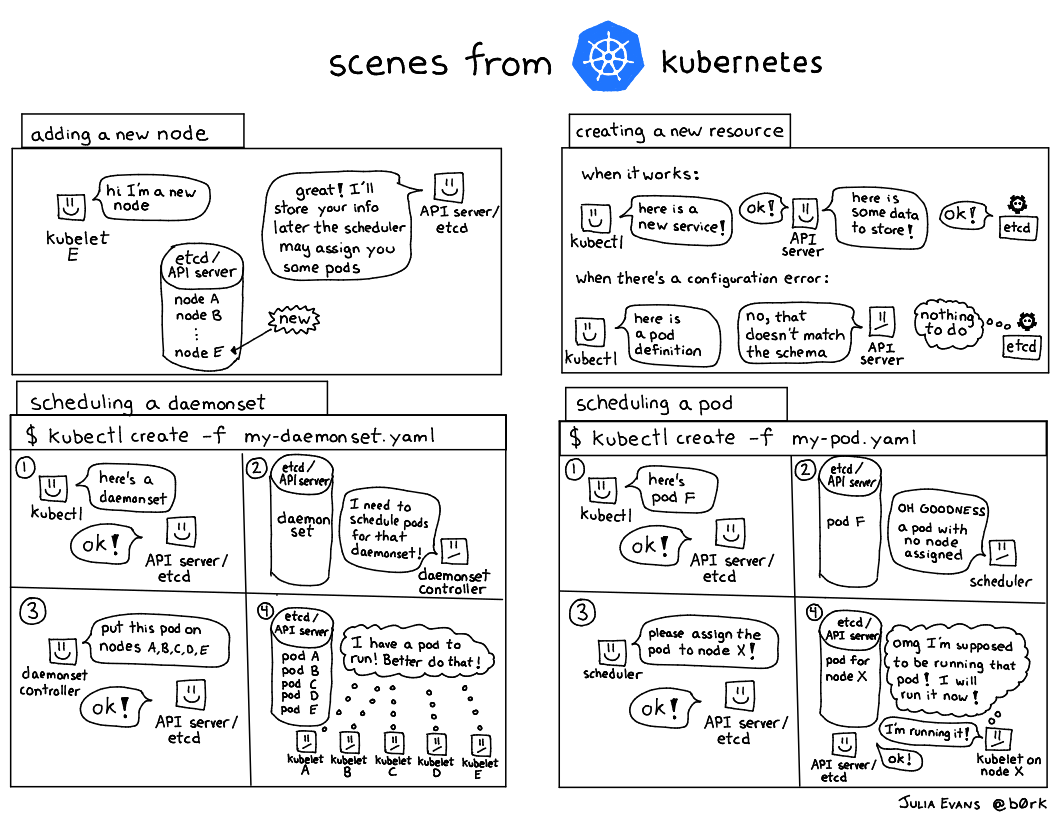 scenes from kubernetes
adding a new node
hi I'm a new
node
kubelet
E
great! I'll
store your info
later the scheduler
may assign you
some pods
API server/
etcd
etcd/
API server
node A
node B
⋮
node E
new
creating a new resource
when it works:
kubectl
here is a
new service!
ok!
API
server
here is
some data
to store!
ok!
etcd
when there's a configuration error:
kubectl
here is
a pod
definition
no, that
doesn't match
the schema
API
server
nothing
to do
etcd
scheduling a daemonset
$ kubectl create -f my-daemonset.yaml
1
kubectl
here's a
daemonset
ok!
API server/
etcd
2
etcd/
API server
daemon
set
I need to
schedule pods
for that
daemonset!
daemonset
controller
3
daemonset
controller
put this pod on
nodes A,B,C,D,E
ok!
API server/
etcd
4
etcd/
API server
pod A
pod B
pod C
pod D
pod E
I have a pod to
run! Better do that!
kubelet
A
kubelet
B
kubelet
C
kubelet
D
kubelet
E
scheduling a pod
$ kubectl create -f my-pod.yaml
1
kubectl
here's
pod F
ok!
API server/
etcd
2
etcd/
API server
pod F
OH GOODNESS
a pod with
no node
assigned
scheduler
3
scheduler
please assign the
pod to node X!
ok!
API server/
etcd
4
etcd/
API server
pod for
node X
omg I'm supposed
to be running that
pod! I will
run it now!
I'm running it!
kubelet on
node X
API server/
etcd
ok!
JULIA EVANS @b0rk